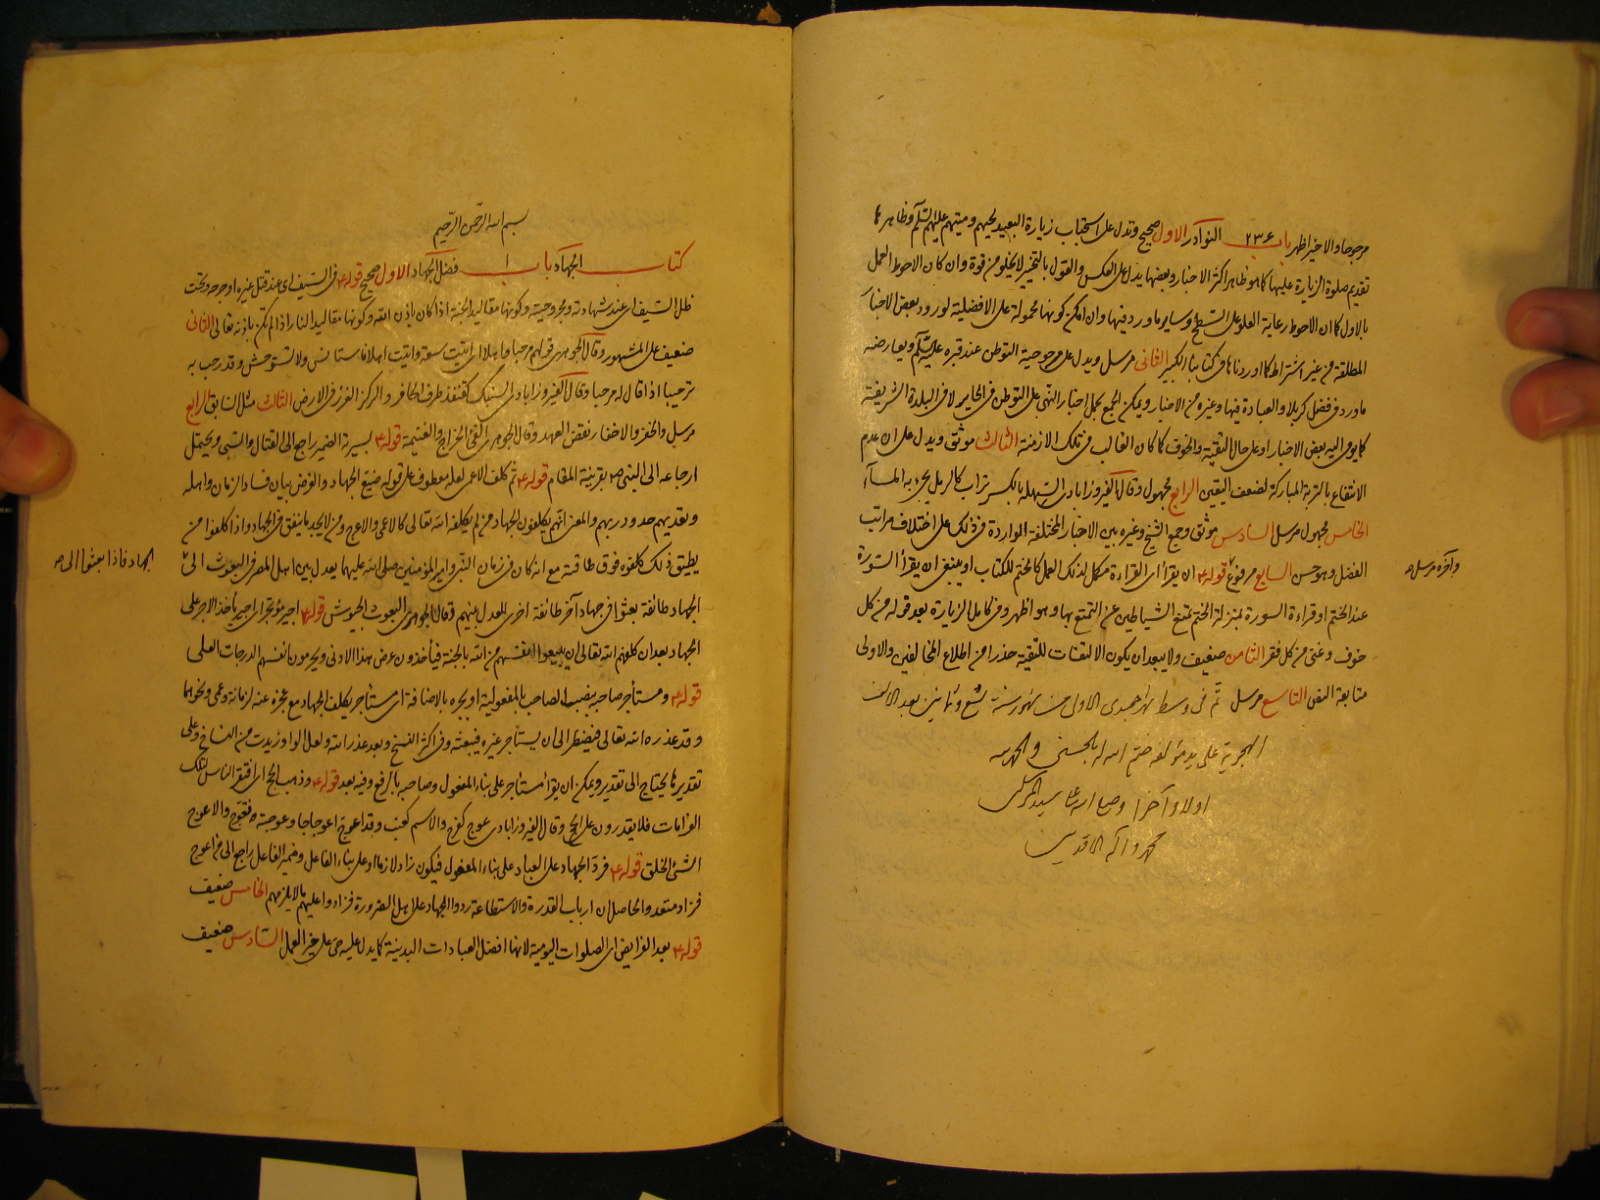 مرجوحا والاخير اظهر باب ٢٣۶ النوادر الاول صحيح وتدل على استحباب زيارة البعيد لحيهم وميتهم عليهم السلم وظاهرها
تقديم صلوة الزيارة عليها كما هو ظاهر اكثر الاخبار وبعضها يدل على العكس والقول بالتخيير لا يخلو من قوة وان كان الاحوط العمل
بالاول كما ان الاحوط رعاية العلو على السطح وساير ما ورد فيها وان امكن كونها محمولة على الافضلية لورود بعض الاخبار
المطلقة من غير اشتراط كما اوردناها فى كتابنا الكبير الثانى مرسل ويدل على مرجوحية التوطن عند قبره عليه السلم ويعارضه
ما ورد فى فضل كربلا والعبادة فيها وغيره من الاخبار ويمكن الجمع بحمل اخبار النهى على التوطن فى الحاير لا فى البلدة الشريفة
كما يومى اليه بعض الاخبار او على حال التقية والخوف كما كان الغالب فى تلك الازمنة الثالث موثق ويدل على ان عدم
الانتفاع بالتربة المباركة لضعف اليقين الرابع مجهول وقال الفيروزابادى السهلة بالكسر تراب كالرمل يجىء به المآء
الخامس مجهول مرسل السادس موثق وجمع الشيخ وغيره بين الاخبار المختلفة الواردة فى ذلك على اختلاف مراتب
الفضل وهو حسن السابع مرفوع قوله ع ان يقرأ اى القراءة مكمل لذلك العمل كالختم للكتاب او ينبغى ان يقرأ السورة
وآخره مرسل صح
عند الختم او قراءة السورة بمنزلة الختم تمنع الشياطين عن التمتع بها وهو اظهر وفى كامل الزيارة بعد قوله من كل
خوف وغنى من كل فقر الثامن ضعيف ولا يبعد ان يكون الالتفات للتقية حذرا من اطلاع المخالفين والاولى
متابعة النص التاسع مرسل تم فى وسط شهر جمدى الاولى من شهور سنة تسع وثمانين بعد الالف
الهجرية على يد مؤلفه ختم الله له بالحسنى والحمد لله
اولا وآخرا وصلى الله على سيد المرسلين
محمد وآله الاقدسين
بسم الله الرحمن الرحيم
كتاب الجهاد باب ١ فضل الجهاد الاول صحيح قوله ع فى السيف اى عند قتل غيره او جرحه وتحت
ظل السيف اى عند شهادته ومجروحيته وكونها مقاليد الجنة اذا كان باذن الله وكونها مقاليد النار اذا لم تكن باذنه تعالى الثانى
ضعيف على المشهور وقال الجوهرى قولهم مرحبا واهلا اى اتيت سعة واتيت اهلا فاستانس ولا تستوحش وقد رحب به
ترحيبا اذا قال له مرحبا وقال الفيروزابادى السنبك كقنفذ طرف الحافر والركز الغرز فى الارض الثالث مثل السابق الرابع
مرسل والخفر والاخفار نقض العهد وقال الجوهرى الفىء الخراج والغنيمة قوله ع بسيرة الضمير راجع الى القتال والسبى ويحتمل
ارجاعه الى النبى ص بقرينة المقام قوله ع ثم كلف الاعمى لعله معطوف على قوله ضيع الجهاد والغرض بيان فساد الزمان واهله
وتعديهم حدود ربهم والمعنى انهم يكلفون الجهاد من لم يكلفه الله تعالى كالاعمى والاعرج ومن لا يجد ما ينفق فى الجهاد واذا كلفوا من
يطيق ذلك كلفوه فوق طاقته مع انه كان فى زمان النبى وامير المؤمنين صلى الله عليهما يعدل بين اهل المصر فى البعوث الى
الجهاد فاذا بعثوا الى صح
الجهاد طائفة بعثوا فى جهاد آخر طائفة اخرى للعدل بينهم وقال الجوهرى البعوث الجيوش قوله ع اجير مؤتجر اى اجير ياخذ الاجر على
الجهاد بعد ان كلفهم الله تعالى ان يبيعوا انفسهم من الله بالجنة فيأخذون عرض هذا الادنى ويحرمون انفسهم الدرجات العلى
قوله ع ومستأجر صاحبه بنصب الصاحب بالمفعولية او بجره بالاضافة اى مستأجر يكلف الجهاد مع عجزه عنه لزمانة وعمى ونحوهما
وقد عذره الله تعالى فيضطر الى ان يستاجر غيره فيبعثه وفى اكثر النسخ وبعد عذر الله ولعل الواو زيدت من النساخ وعلى
تقديرها يحتاج الى تقدير ويمكن ان يقرأ مستأجر على بناء المفعول وصاحبه بالرفع وفيه بعد قوله ع وذهب الحج اى افتقر الناس لتلك
الغرامات فلا يقدرون على الحج وقال الفيروزابادى عوج كفرح والاسم كعنب وقد اعوج اعوجاجا وعوجته فتعوج والاعوج
السىء الخلق قوله ع فرد الجهاد على العباد على بناء المفعول فيكون زاد لازما او على بناء الفاعل وضمير الفاعل راجع الى من اعوج
فزاد متعد والحاصل ان ارباب القدرة والاستطاعة ردوا الجهاد على اهل الضرورة فزادوا عليهم ما لا يلزمهم الخامس ضعيف
قوله ع بعد الفرايض اى الصلوات اليومية لانها افضل العبادات البدنية كما يدل عليه حى على خير العمل السادس ضعيف